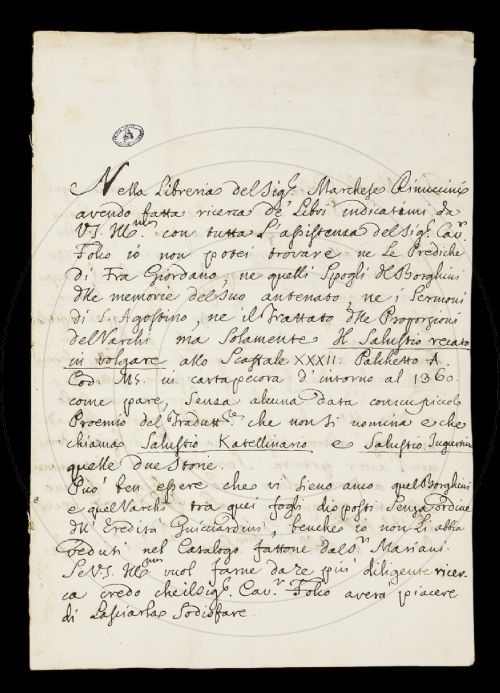 Nella Libreria del Sig.r Marchese Rinuccini
avendo fatta ricerca de' Libri indicatimi da
V.S. Ill.ma con tutta l'assistenza del Sig.r Cav.r
io non potei trovare ne le Prediche
di Fra Giordano, ne quelli Spogli del Borghini
delle memorie del Suo antenato, ne i Sermoni
di S. Agostino, ne il Trattato delle Proporzioni
del Varchi ma solamente il Salustio recato
in volgare allo Scaffale XXXII. Palchetto A.
Cod. MS. in cartapecora d'intorno al 1360.
come pare, senza alcuna data con un piccolo
Proemio del Tradutt.re che non si nomina e che
chiama Salustio Katellinario e Salustio Jugurtino
quelle due Storie.
Può ben essere che vi sieno anco quel Borghini
e quel Varchi tra quei fogli disposti senza ordine
dell' Eredità Guicciardini, benche io non li abbia
veduti nel Catalogo fattone dal S.r Mariani.
Se V.S. Ill.ma vuol farne dare più diligente ricer-
ca credo che il Sig.r Cav.r averà piacere
di lasciarla sodisfare.